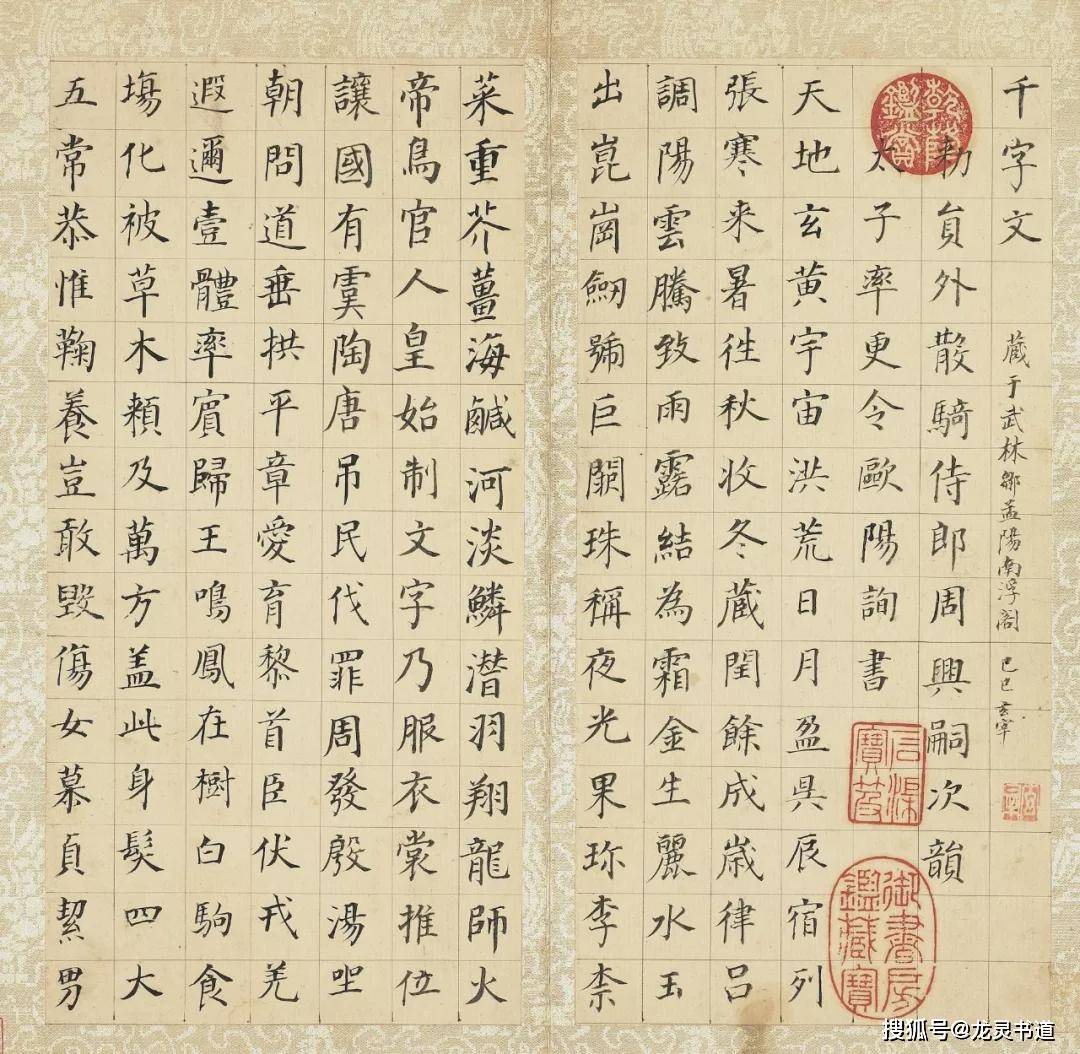 千字文
藏于武林鄒孟陽南浮閣 己巳 玄宰
勅員外散騎侍郎周興嗣次韻
太子率更令歐陽詢書
天地玄黃宇宙洪荒日月盈昃辰宿列
張寒来暑徃秋收冬藏閏餘成歲律吕
調陽雲騰致雨露結為霜金生麗水玉
出崑崗劒號巨闕珠稱夜光果珎李柰
菜重芥薑海鹹河淡鱗潛羽翔龍師火
帝鳥官人皇始制文字乃服衣裳推位
讓國有虞陶唐吊民伐罪周發殷湯坐
朝問道垂拱平章愛育黎首臣伏戎羌
遐邇壹體率賓歸王鳴鳳在樹白駒食
塲化被草木賴及萬方盖此身髮四大
五常恭惟鞠養豈敢毀傷女慕貞絜男
乾隆鑑賞
石渠寶笈
御書房鑑藏寶
搜狐号@龙灵书道